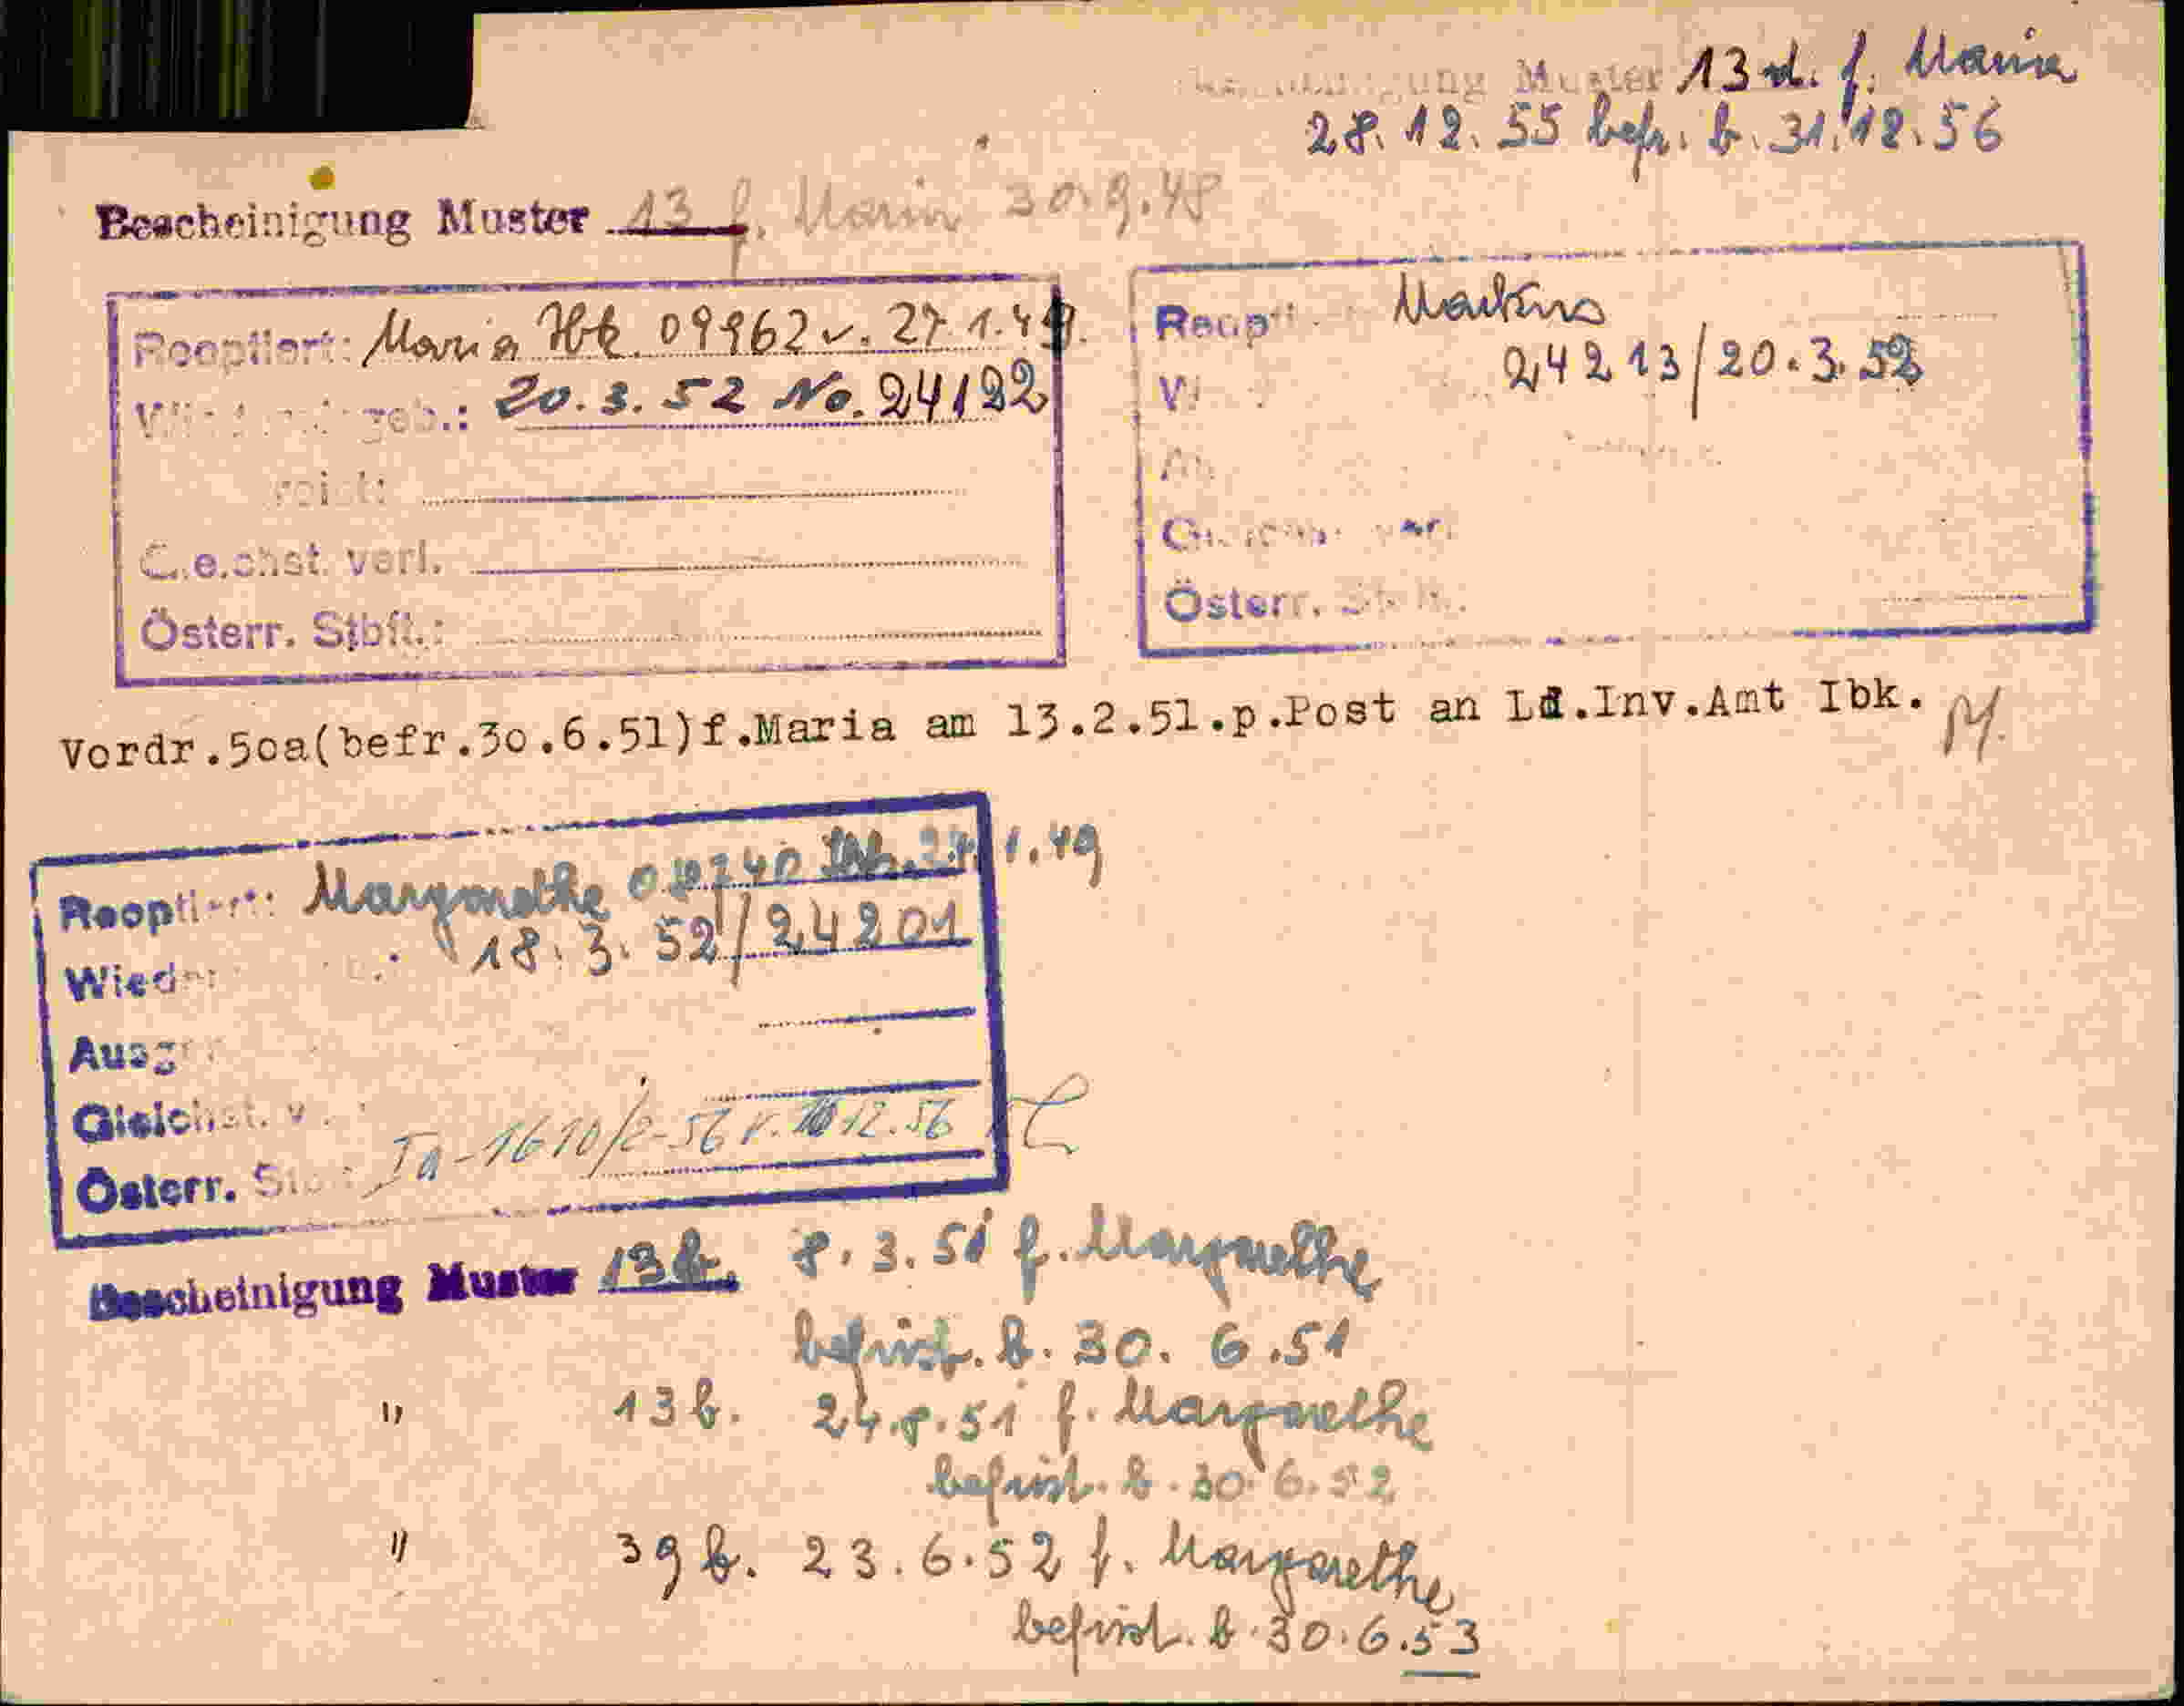 Muster 13 d. f. Maria
28.12.55 befr. b. 31.12.56
Bescheinigung Muster 13 f. Maria 30.9.48
Reoptiert: Maria 09962 v. 27.1.49.
geb.: 20.3.52 No. 24192
reist:
verl.
Österr. Stbft.:
Markus
24213/20.3.52
Österr.
Vordr.50a(befr.30.6.51)f.Maria am 13.2.51.p.Post an Ld.Inv.Amt Ibk.
Reoptiert: Margarethe 1.49
18.3.52/24201
Österr. Ia-1610/2-56 v. 12.56
Bescheinigung Muster 13b. 8.3.51 f. Margarethe
befrist. b. 30.6.51
" 13b. 24.8.51 f. Margarethe
befrist. b. 30.6.52
" 39b. 23.6.52 f. Margarethe
befrist. b. 30.6.53